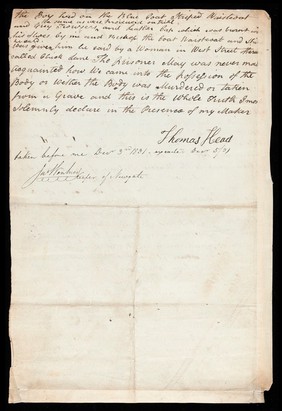 The Boy had on the Blue Coat Striped Waistcoat
and Grey Trowsers and Leather Cap which was burnt in
his Shoes by me and Buried the Coat Waistcoat and
given him he said by a Woman in West Street
called Chick Lane The prisoner May was never made
acquainted how We came into the possession of the
Body or Wether the Body was Murdered or taken
from a Grave and this is the Whole Truth I now
Solemnly declare in the Presence of my Maker
Thomas Head
Taken before me Decr 3rd 1831. executed
Keeper of Newgate